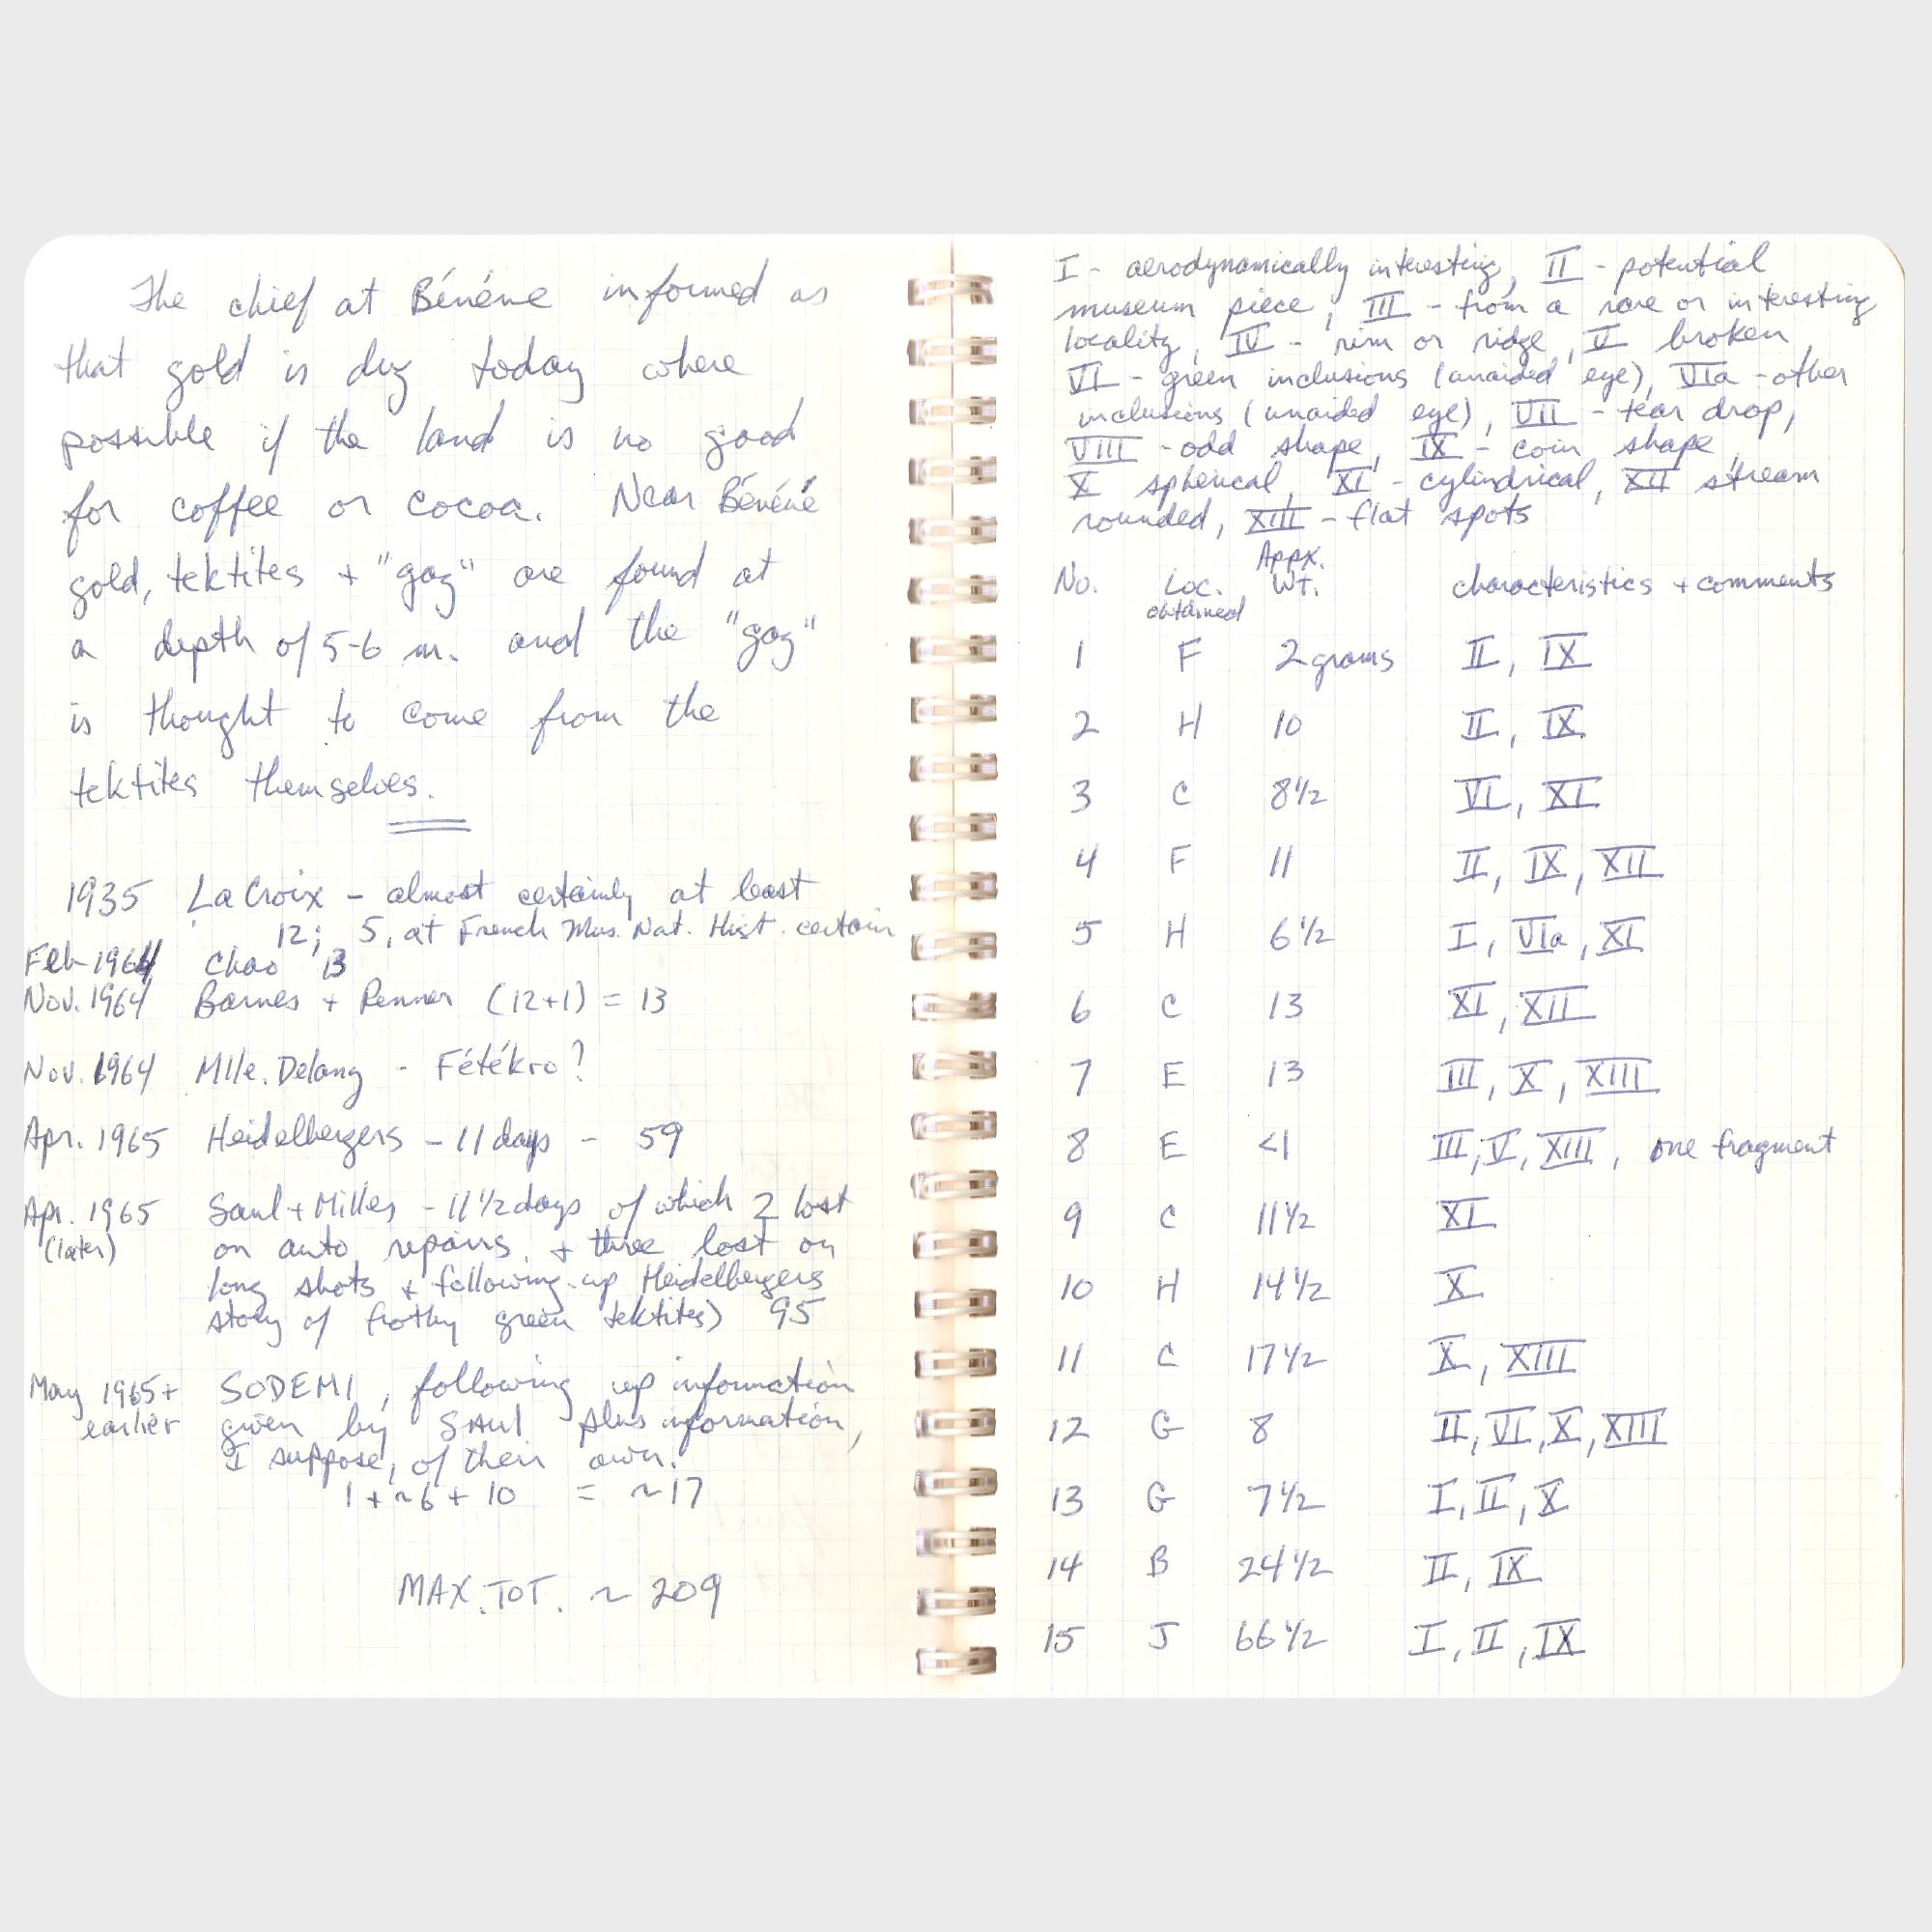 The chief at Bénéne informed us
that gold is dug today where
possible if the land is no good
for coffee or cocoa. Near Bénéné
gold, tektites + "gaz" are found at
a depth of 5-6 m. and the "gaz"
is thought to come from the
tektites themselves.
1935 LaCroix - almost certainly at least
12; 5, at French Mus. Nat. Hist. certain
Feb 1964 Chao 13
Nov. 1964 Barnes + Renner (12+1) = 13
Nov. 1964 Mlle. Delang - Fétékro?
Apr. 1965 Heidelbergers - 11 days - 59
Apr. 1965 Saul + Milles - 11 1/2 days of which 2 lost
(later) on auto repairs, + three lost on
long shots + following up Heidelbergers
story of frothy green tektites) 95
May 1965+ SODEMI, following up information
earlier given by Saul plus information,
I suppose, of their own.
1 + ~6 + 10 = ~17
MAX. TOT. ~ 209
I - aerodynamically interesting, II - potential
museum piece, III - from a rare or interesting
locality, IV - rim or ridge, V broken,
VI - green inclusions (unaided eye), VIa - other
inclusions (unaided eye), VII - tear drop,
VIII - odd shape, IX - coin shape,
X spherical, XI - cylindrical, XII stream
rounded, XIII - flat spots
No. Loc. obtained Appx. Wt. characteristics + comments
1 F 2 grams II, IX
2 H 10 II, IX
3 C 8 1/2 VI, XI
4 F 11 II, IX, XII
5 H 6 1/2 I, VIa, XI
6 C 13 XI, XII
7 E 13 III, X, XIII
8 E <1 III, V, XIII, one fragment
9 C 11 1/2 XI
10 H 14 1/2 X
11 C 17 1/2 X, XIII
12 G 8 II, VI, X, XIII
13 G 7 1/2 I, II, X
14 B 24 1/2 II, IX
15 J 66 1/2 I, II, IX